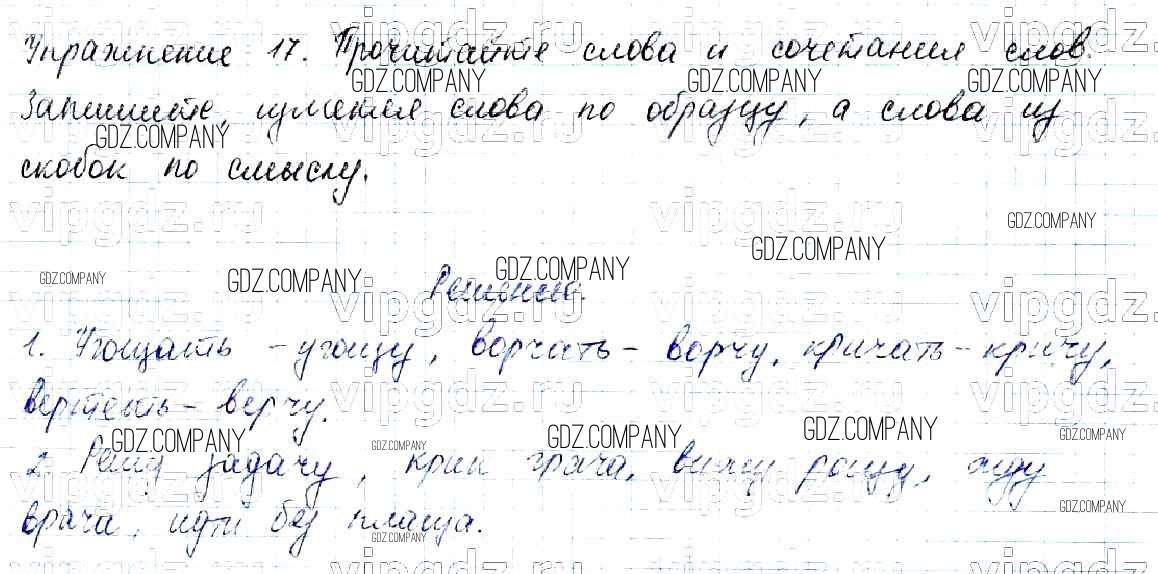 Упражнение 17. Прочитайте слова и сочетания слов.
Запишите, изменяя слова по образцу, а слова из
скобок по смыслу.
Решение.
1. Угощать - угощу, ворчать - ворчу, кричать - кричу,
вертеть - верчу.
2. Решу задачу, крик грача, вижу рощу, жду
врача, идти без плаща.